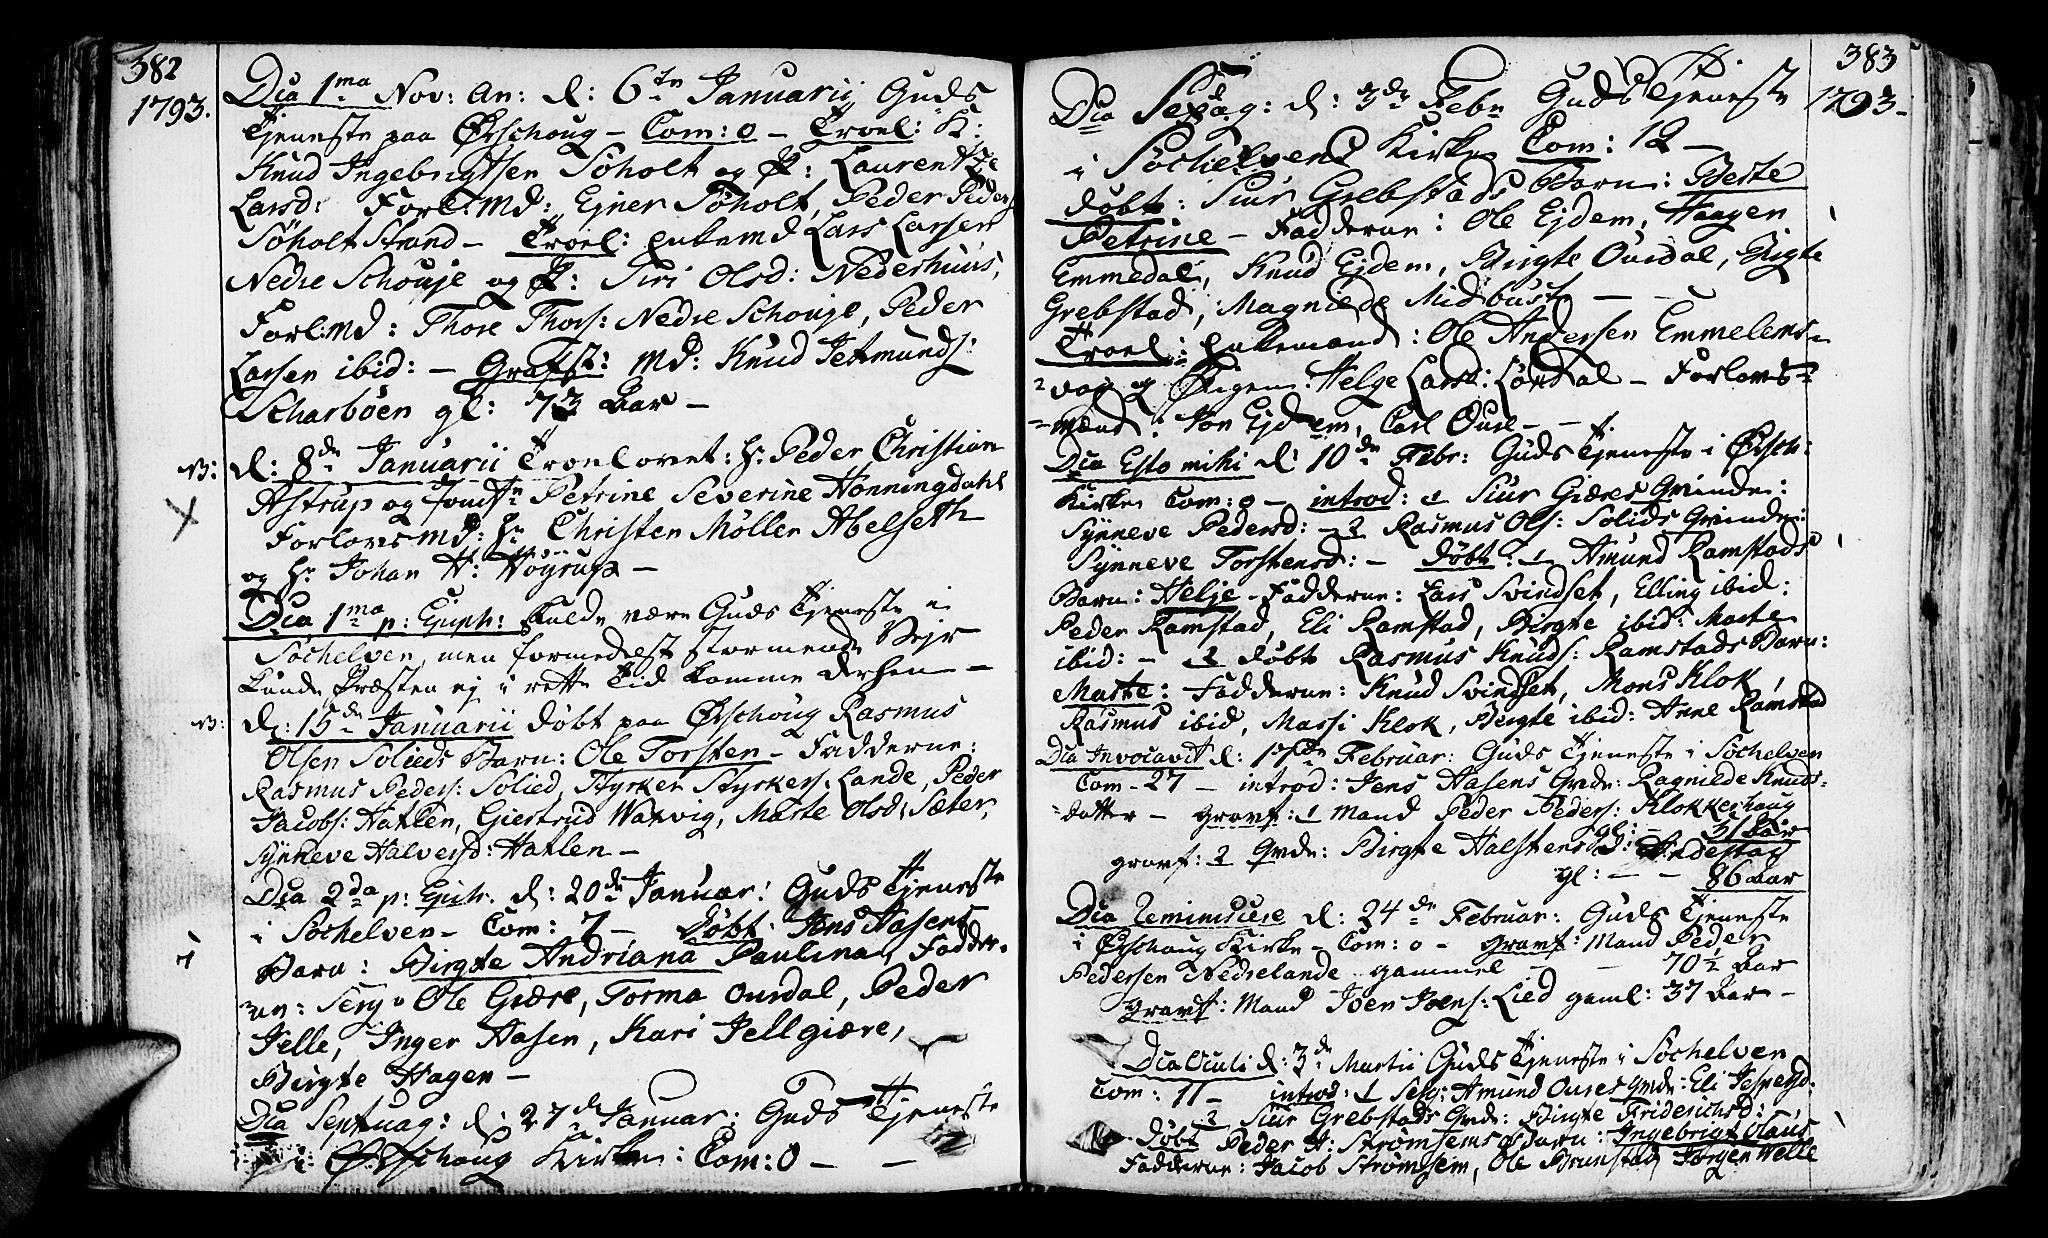 382
1793.
Dca 1ma Nov: An: d: 6te Januarii, Guds
Tjeneste paa Ørschoug – Com: 0 – Troel: K:
Knud Ingebrigtsen Søholt og P: Laurentze
Larsd: Forl: Md: Ejner Søholt, Peder Peders
Søholt Strand – Troel: Enkemd Lars Larsen
Nedre Schouje og P: Siri Olsd: Nederhuus,
Forl: Md: Thore Thors: Nedre Schouje, Peder
Larsen ibid: – Grafst: Md: Knud Jetmunds:
Scharbøen gl: 73 Aar –
NB: d: 8de Januarii Troelovet: Hr Peder Christian
Astrup og Petrine Severine Honningdahl
Forlovs Md: Hr Christen Møller Abelseth
og Hr Johan H: Høyrup –
Dca 1ma p: Epiph: skulde være Guds Tjeneste i
Søchelven, men formedelst stormende Vejr
kunde Præsten ej i rette Tid komme derhen –
NB: d: 15de Januarii døbt paa Ørschoug Rasmus
Olsen Solieds Barn: Ole Torsten – Fadderne:
Rasmus Peders: Solied, Styrker Styrkers: Lande, Peder
Jacobs: Hatlen, Giertrud Watvig, Marte Olsd: Sæter,
Synneve Halversd: Hatlen –
Dca 2da p: Epih. d: 20de Januar: Guds Tjeneste
i Søchelven – Com: 7 – Døbt: Jens Hasens
1 Barn: Birgte Andriana Paulina, Fadder-
ne: Serg: Ole Giære, Torma Ousdal, Peder
Jelle, Inger Hasen, Kari Jellgiære,
Birgte Hagen –
Dca Septuag: d: 27de Januar: Guds Tjeneste
i: Ørschoug Kirke: Com: 0 – –
383
1793 –
Dca Sexag: d: 3de Febr Guds Tjeneste
i Søchelvens Kirke Com: 12 –
døbt: Siur Grebstads Barn: Berte
Petrine – Fadderne: Ole Ejdem, Haagen
Emmedal, Knud Ejdem, Birgte Ousdal, Birgte
Grebstad, Magnilde Midbust – –
Troel: Enkemand: Ole Andersen Emmelems-
vog og Pigen: Helge Larsd: Lørdal – Forlovs-
mænd: Jon Ejdem, Carl Ouse – –
Dca Esto mihi d: 10de Febr: Guds Tjeneste i Ørsch:
Kirke Com: 0 – introd: 1 Siur Giæres Qvinde:
Synneve Pedersd: – 2 Rasmus Ols: Solids Qvinde:
Synneve Torstensd: – døbt: 1 Amund Ramstads
Barn: Helje – Fadderne: Lars Svindset, Elling ibid:
Peder Ramstad, Eli Ramstad, Birgte ibid: Marte
ibid: – 2 døbt Rasmus Knuds: Ramstads Barn:
Marte: Fadderne: Knud Svindset, Mons Klok,
Rasmus ibid, Massi Klok, Birgte ibid: Anne Ramstad
Dca Invocavit d: 17de Februar: Guds Tjeneste i Søchelven
Com – 27 – introd: Jens Hasens Qvde: Ragnilde Knuds-
datter – Gravf: 1 Mand Peder Peders: Klokkerhaug
gl: – 51 Aar
gravf: 2 Qvde: Birgte Halstensd: Andestad
gl: – – 86 Aar
Dca Reminiscere d: 24de Februar: Guds Tjeneste
i Ørschoug Kirke – Com: 0 – gravf: Mand Peder
Pedersen Nedrelande gammel – – 70½ Aar
gravf: Mand Joen Joens: Lied gaml: 37 Aar –
Dca Oculi d: 3de Martii Guds Tjeneste i Søchelven
Com: 11 – introd: 1 Serg: Amund Ouses Qvde: Eli Jespersd:
2 Siur Grebstads Qvde: Birgte Friderichsd:
Døbt Peder H: Strømsems Barn: Ingebrigt Olaus
Fadderne: Jacob Strømsem, Ole Brunstad, Jørgen Welle